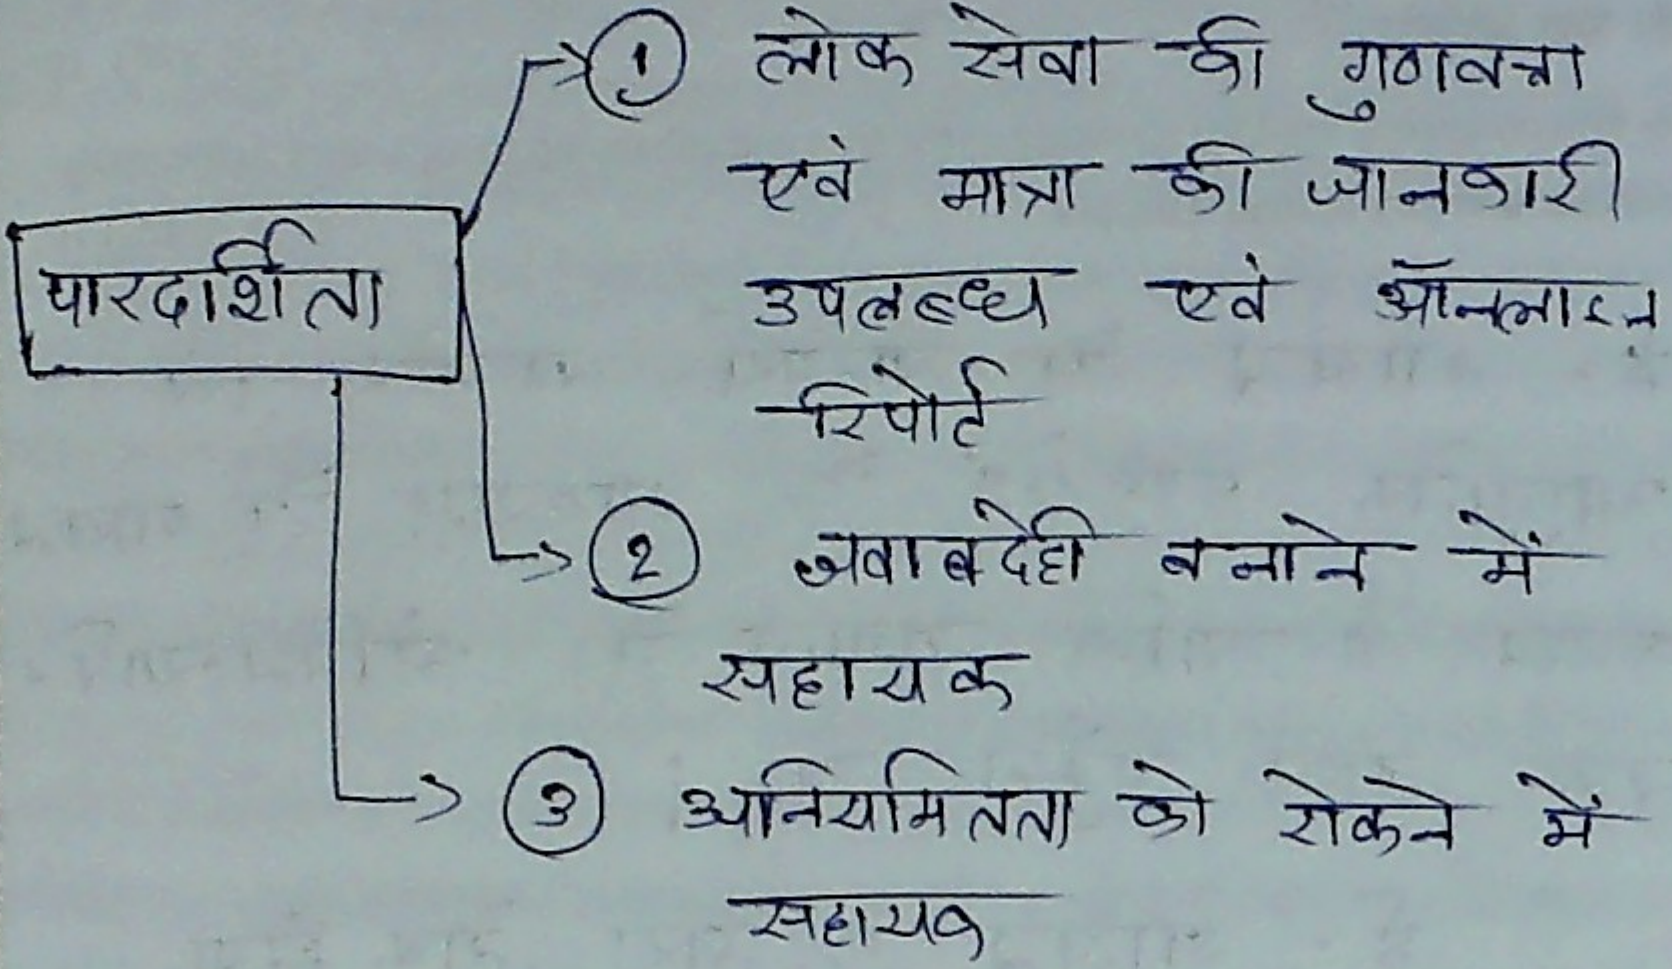 ① लोक सेवा की गुणवत्ता
एवं मात्रा की जानकारी
उपलब्ध एवं ऑनलाइन
रिपोर्ट
पारदर्शिता
② जवाबदेही बनाने में
सहायक
③ अनियमितता को रोकने में
सहायक